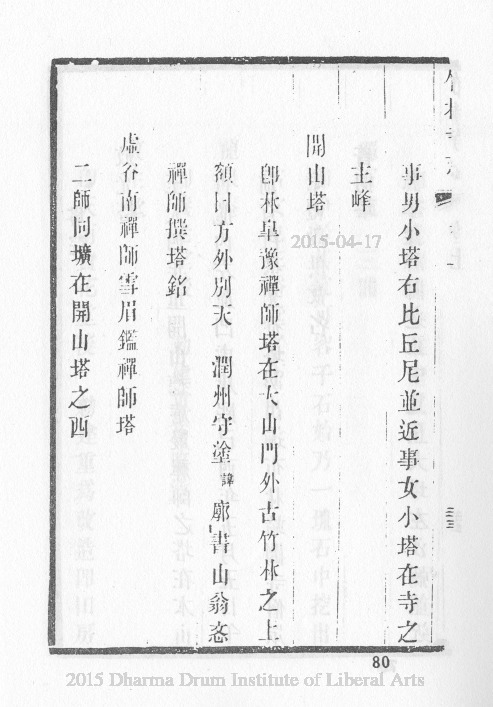 事男小塔右比丘尼並近事女小塔在寺之
主峰
開山塔
卽林臯豫禪師塔在大山門外古竹林之上
額曰方外別天 潤州守塗諱廓書山翁忞
禪師撰塔銘
虛谷南禪師雪眉鑑禪師塔
二師同壙在開山塔之西
2015-04-17
80
2015 Dharma Drum Institute of Liberal Arts